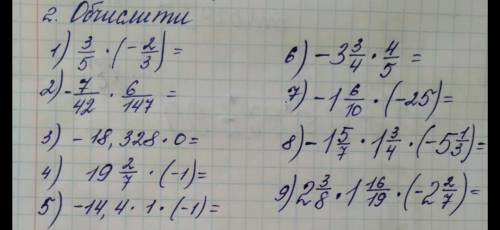 2. Обчислити
1) 3/5 · (-2/3) =
2) -7/42 · 6/147 =
3) -18,328 · 0 =
4) 19 2/7 · (-1) =
5) -14,4 · 1 · (-1) =
6) -3 3/4 · 4/5 =
7) -1 6/10 · (-25) =
8) -1 5/7 · 1 3/4 · (-5 1/3) =
9) 2 3/8 · 1 16/19 · (-2 2/7) =